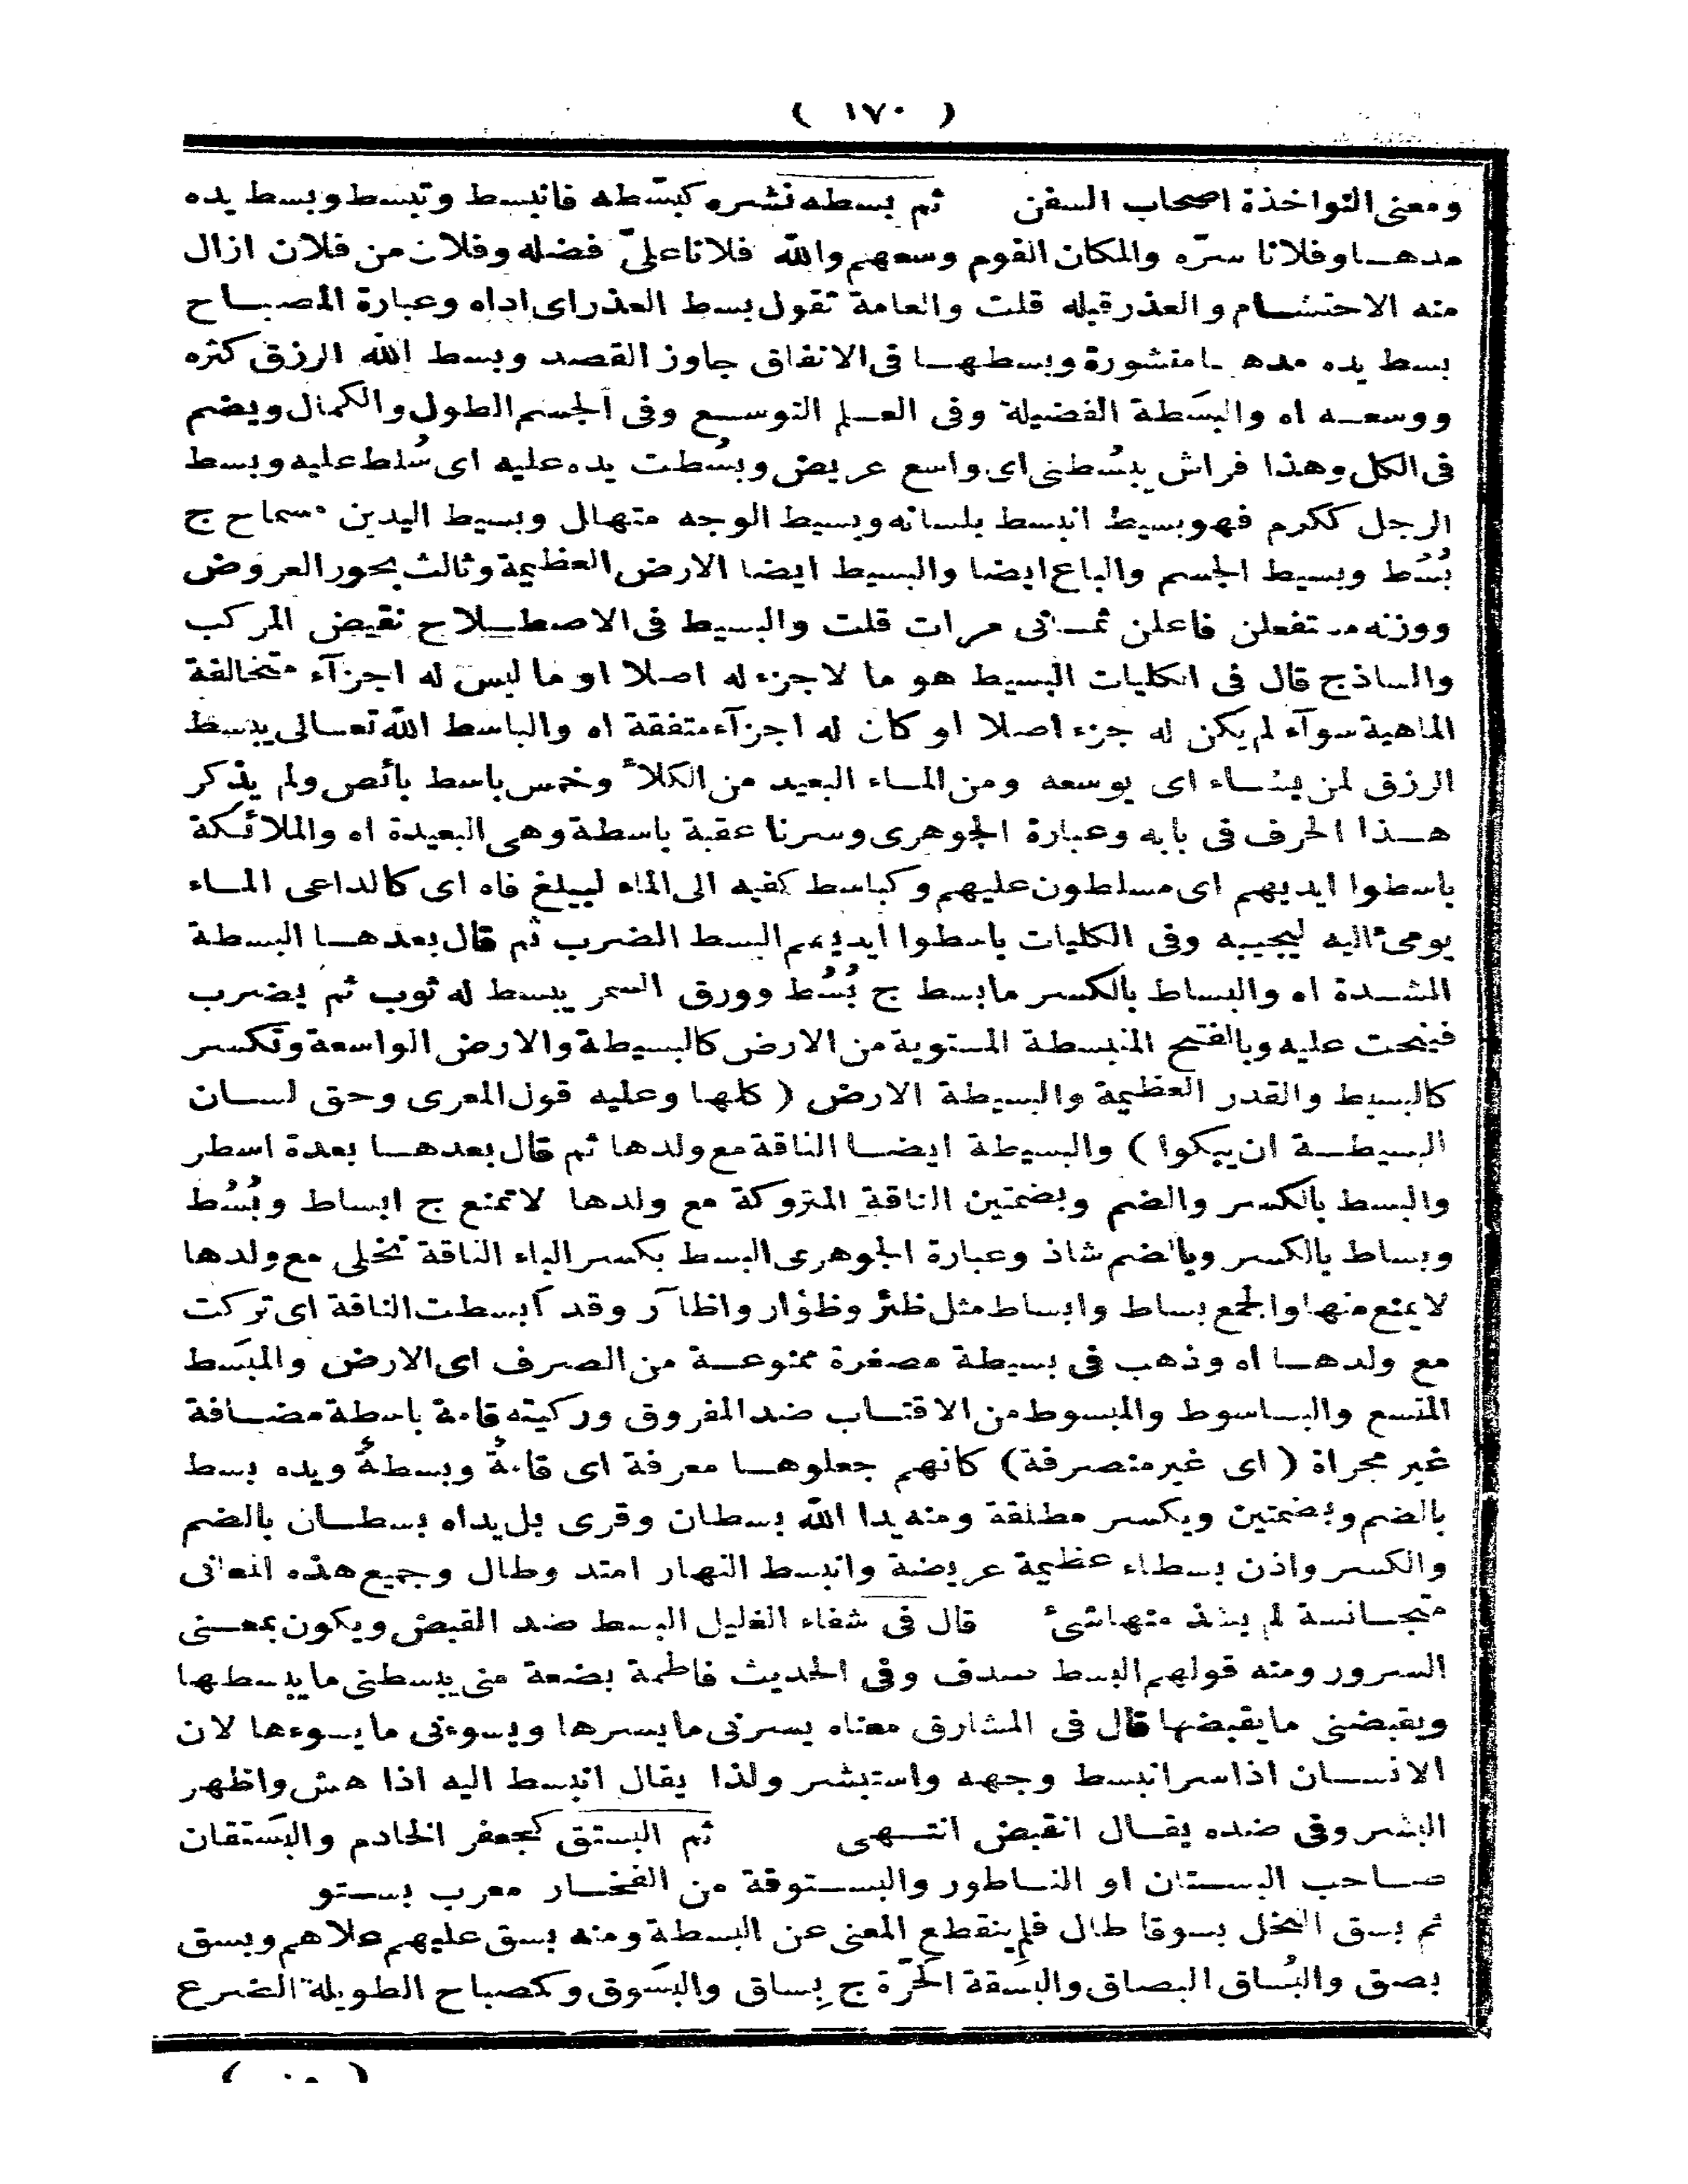 ( ١٧٠ )
ومعنى النواخذة اصحاب السفن ثم بسطه نشره كبسّطه فانبسط وتبسط وبسط يده
مدهـا وفلانا سرّه والمكان القوم وسعهم والله فلانا علىّ فضله وفلان من فلان ازال
منه الاحتشـام والعذر قبله قلت والعامة تقول بسط العذر اى اداه وعبارة المصبـاح
بسط يده مدهـا منشورة وبسطهـا فى الانفاق جاوز القصد وبسط الله الرزق كثره
ووسعـه اه والبسَطة الفضيلة وفى العـلم التوسـع وفى الجسم الطول والكمال ويضم
فى الكل وهذا فراش يبسُطنى اى واسع عريض وبسُطت يده عليه اى سُلط عليه وبسط
الرجل ككرم فهو بسيط انبسط بلسانه وبسيط الوجه متهلل وبسيط اليدين مسماح ج
بُسُط وبسيط الجسم والباع ايضا والبسيط ايضا الارض العظيمة وثالث بحور العروض
ووزنه مستفعلن فاعلن ثمـانى مرات قلت والبسيط فى الاصطـلاح نقيض المركب
والساذج قال فى الكليات البسيط هو ما لا جزء له اصلا او ما ليس له اجزآء متخالفة
الماهية سوآء لم يكن له جزء اصلا او كان له اجزآء متفقة اه والباسط الله تعـالى يبسط
الرزق لمن يشـاء اى يوسعه ومن المـاء البعيد من الكلأ وخمس باسط بائص ولم يذكر
هـذا الحرف فى بابه وعبارة الجوهرى وسرنا عقبة باسطة وهى البعيدة اه والملائكة
باسطوا ايديهم اى مسلطون عليهم وكباسط كفيه الى الماء ليبلغ فاه اى كالداعى المـاء
يومى اليه ليجيبه وفى الكليات باسطوا ايديهم البسط الضرب ثم قال بعدهـا البسطة
الشـدة اه والبساط بالكسر ما بسط ج بُسُط وورق السمر يبسط له ثوب ثم يضرب
فينحت عليه وبالفتح المنبسطة المستوية من الارض كالبسيطة والارض الواسعة وتكسر
كالبسيط والقدر العظيمة والبسيطة الارض ( كلها وعليه قول المعرى وحق لسـان
البسيطـة ان يبكوا ) والبسيطة ايضـا الناقة مع ولدها ثم قال بعدهـا بعدة اسطر
والبسط بالكسر والضم وبضمتين الناقة المتروكة مع ولدها لا تمنع ج ابساط وبُسُط
وبساط بالكسر وبالضم شاذ وعبارة الجوهرى البسط بكسر الباء الناقة تخلى مع ولدها
لا يمنع منها والجمع بساط وابساط مثل ظئر وظؤار واظآر وقد اَبسطت الناقة اى تركت
مع ولدهـا اه وذهب فى بسيطة مصغرة ممنوعـة من الصرف اى الارض والمبسَط
المتسع والبـاسوط والمبسوط من الاقتـاب ضد المفروق وركيته قامة باسطة مضـافة
غير مجراة ( اى غير منصرفة ) كانهم جعلوهـا معرفة اى قامةٌ وبسطةٌ ويده بسط
بالضم وبضمتين ويكسر مطلقة ومنه يدا الله بسطان وقرى بل يداه بسطـان بالضم
والكسر واذن بسطاء عظيمة عريضة وانبسط النهار امتد وطال وجميع هذه المعانى
متجـانسة لم يشذ منها شئ قال فى شفاء الغليل البسط ضد القبض ويكون بمعـنى
السرور ومنه قولهم البسط صدف وفى الحديث فاطمة بضعة منى يبسطنى ما يبسطها
ويقبضنى ما يقبضها قال فى المشارق معناه يسرنى ما يسرها ويسوءنى ما يسوءها لان
الانسـان اذا سر انبسط وجهه واستبشر ولذا يقال انبسط اليه اذا هش واظهر
البشر وفى ضده يقـال انقبض انتـهى ثم البستق كجعفر الخادم والبَستقان
صـاحب البسـتان او النـاطور والبسـتوقة من الفخـار معرب بسـتو
ثم بسق النخل بسوقا طال فلم ينقطع المعنى عن البسطة ومنه بسق عليهم علاهم وبسق
بصق والبُساق البصاق والبسقة الحَرّة ج بِساق والبسَوق وكمصباح الطويلة الضرع